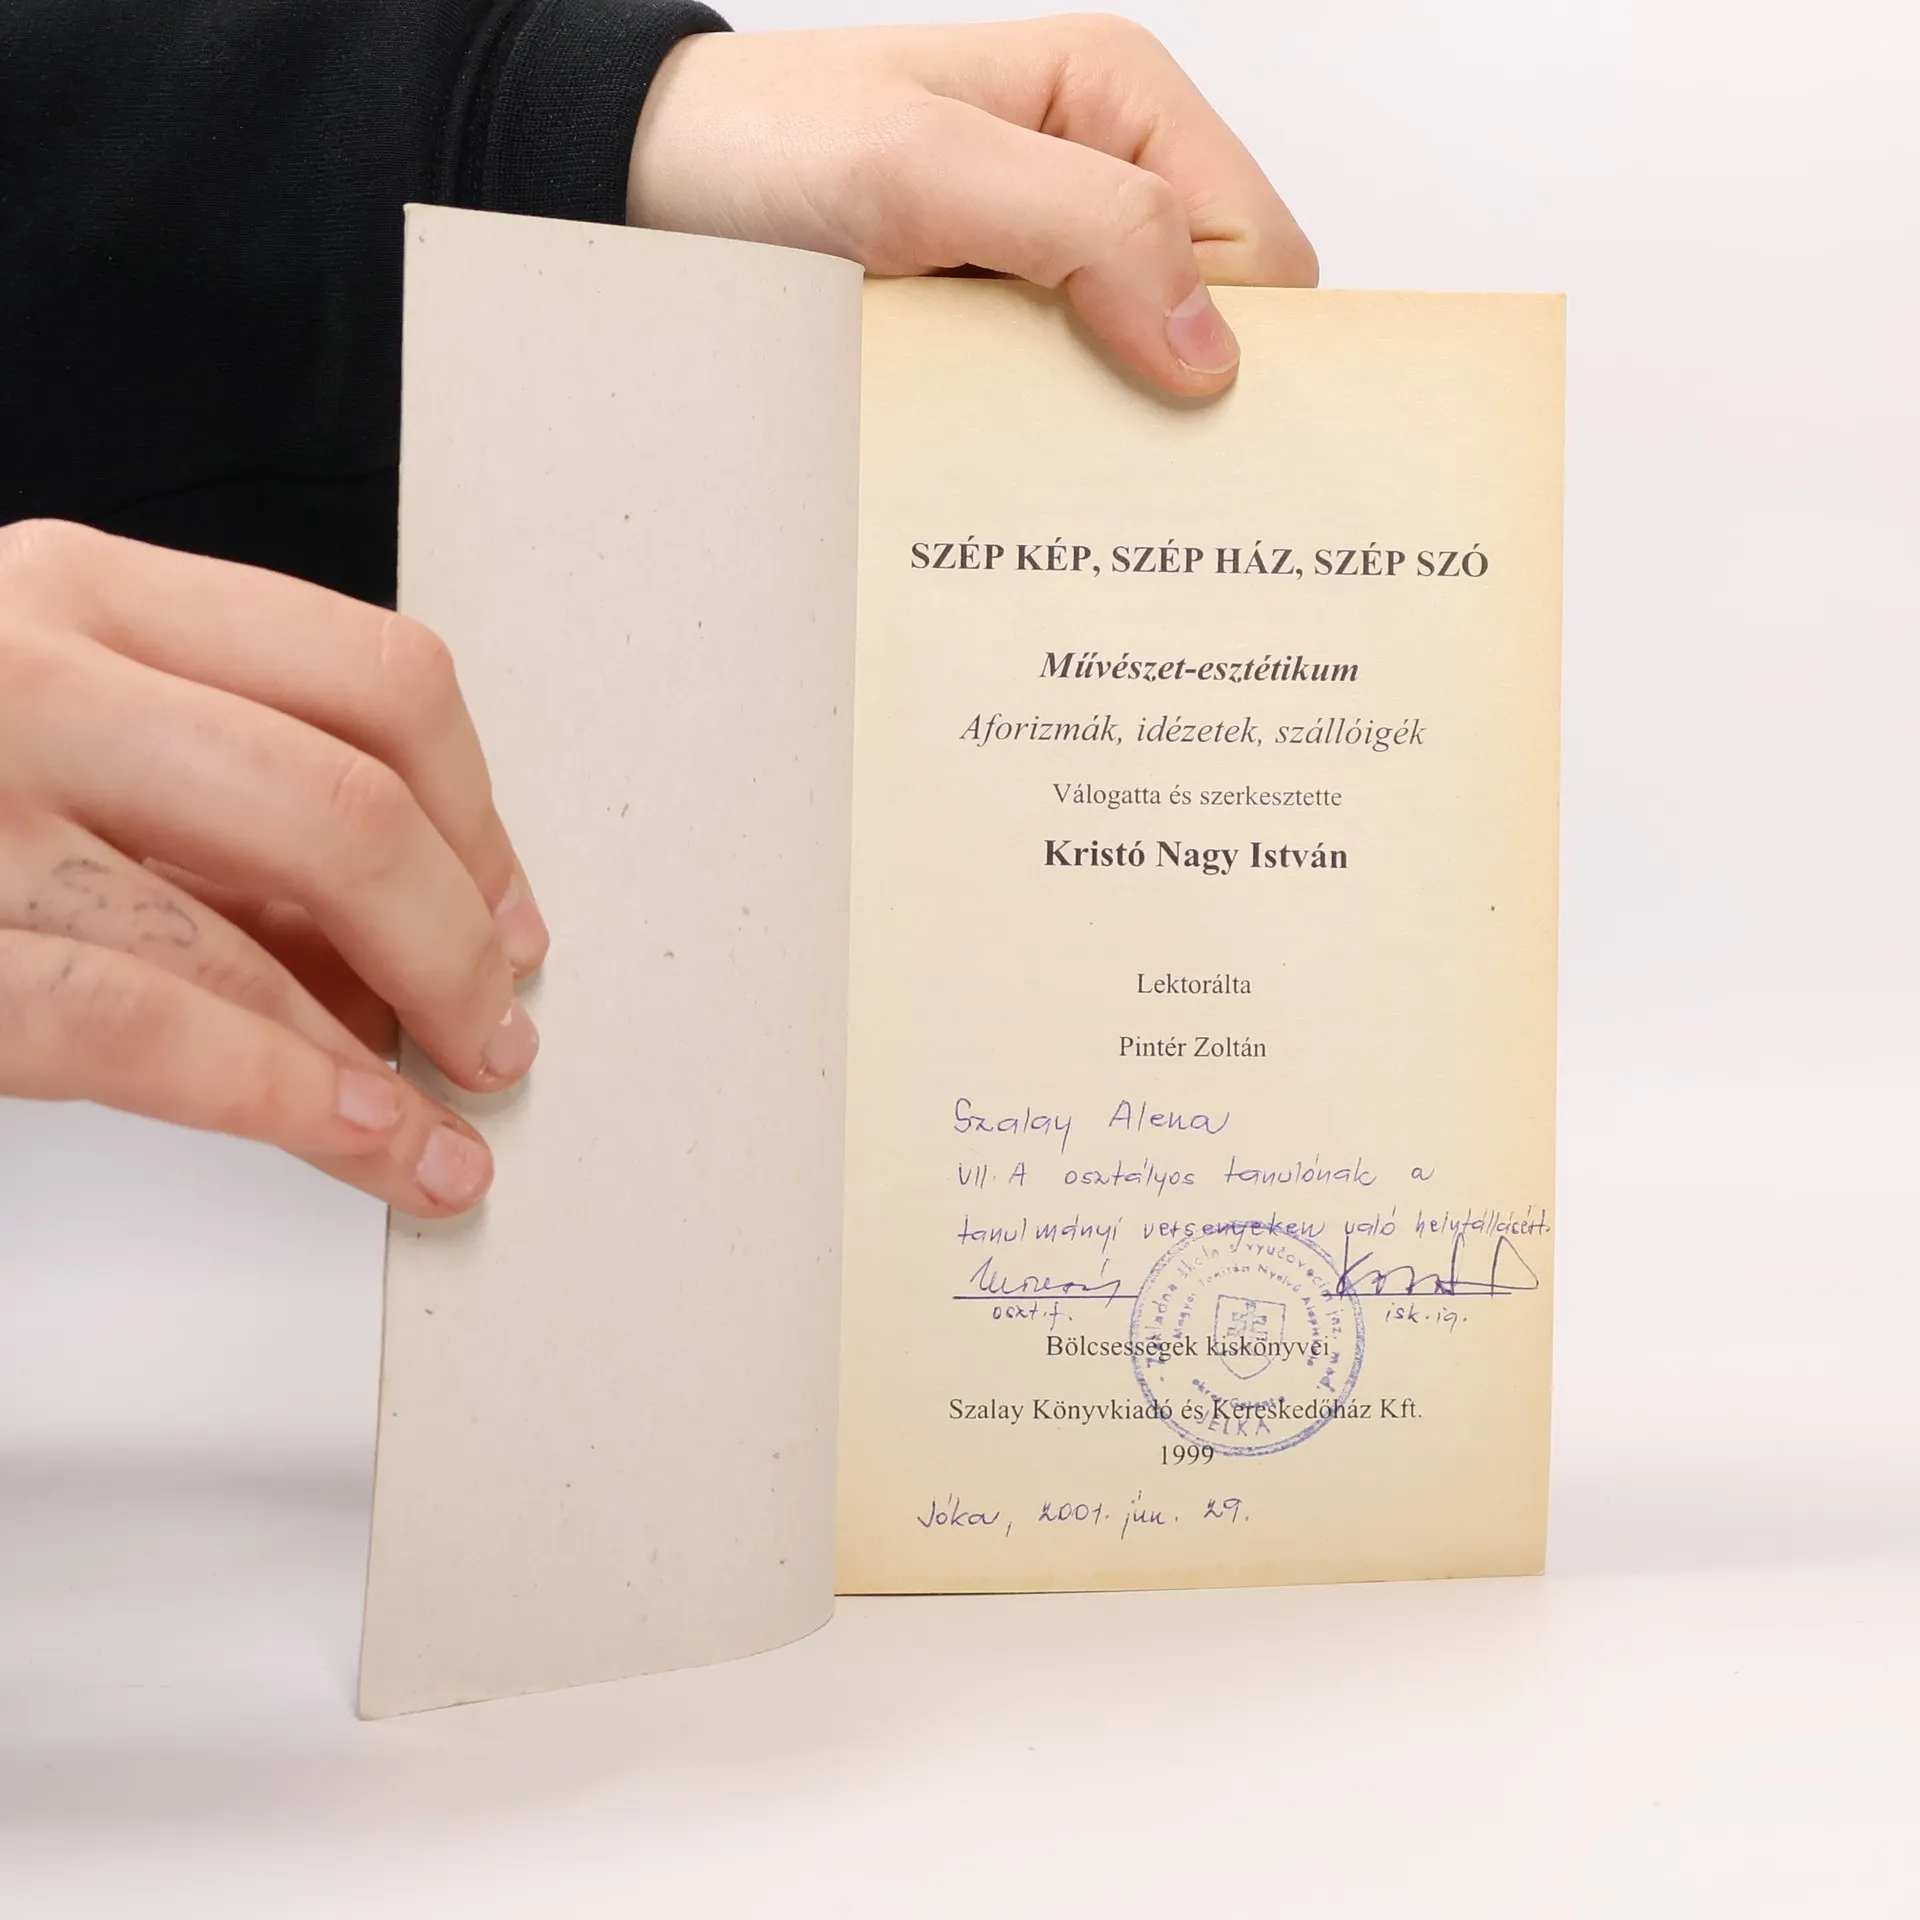 SZÉP KÉP, SZÉP HÁZ, SZÉP SZÓ
Művészet-esztétikum
Aforizmák, idézetek, szállóigék
Válogatta és szerkesztette
Kristó Nagy István
Lektorálta
Pintér Zoltán
Szalay Alena
VII. A osztályos tanulónak a
tanulmányi versenyeken való helytállásért.
oszt.f. isk.ig.
Základná škola s vyučovacím jaz. maď.
Magyar Tanítási Nyelvű Alapiskola
JELKA
Bölcsességek kiskönyvei
Szalay Könyvkiadó és Kereskedőház Kft.
1999
Jóka, 2001. jún. 29.